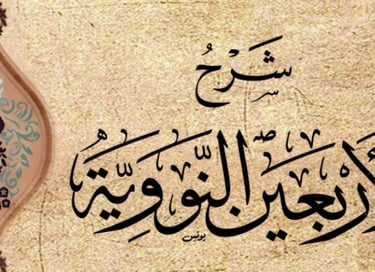 شَرْحُ
لأَرْبَعِينَ النَّوَوِيَّةِ
يونس